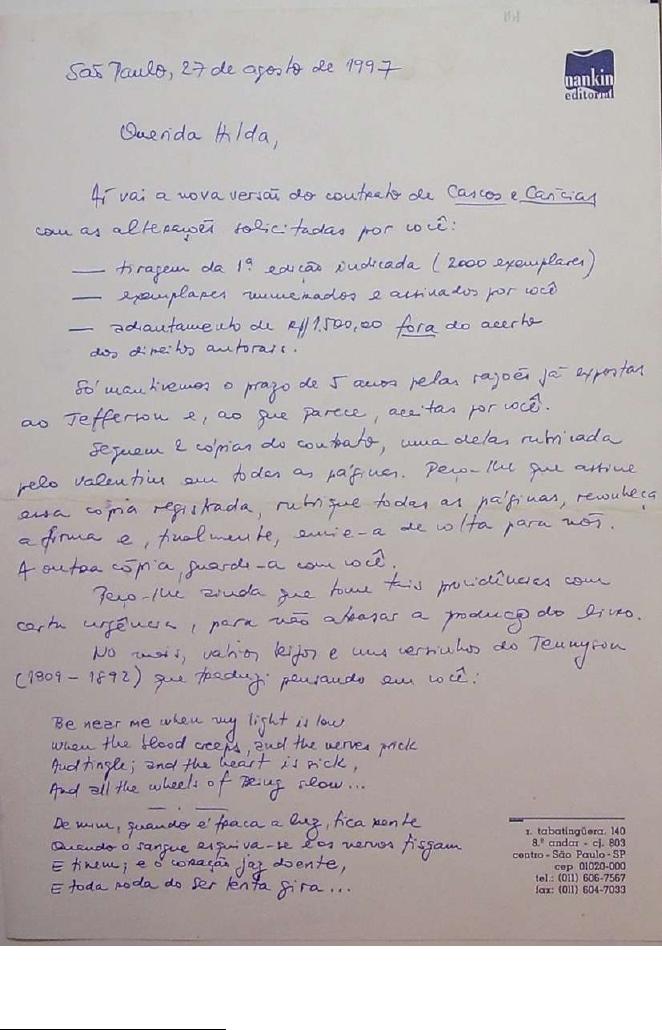 São Paulo, 27 de agosto de 1997
nankin
editorial
Querida Hilda,
Aí vai a nova versão do contrato de Cascos e Carícias
com as alterações solicitadas por você:
— tiragem da 1ª edição indicada (2000 exemplares)
— exemplares numerados e assinados por você
— adiantamento de R$ 1.500,00 fora do acerto
dos direitos autorais.
Só mantivemos o prazo de 5 anos pelas razões já expostas
ao Jefferson e, ao que parece, aceitas por você.
Seguem 2 cópias do contrato, uma delas rubricada
pelo Valentim em todas as páginas. Peço-lhe que assine
essa cópia registrada, rubrique todas as páginas, reconheça
a firma e, finalmente, envie-a de volta para nós.
A outra cópia, guarde-a com você.
Peço-lhe ainda que tome tais providências com
certa urgência, para não atrasar a produção do livro.
No mais, vários beijos e uns versinhos do Tennyson
(1809 - 1892) que traduzi pensando em você:
Be near me when my light is low
When the blood creeps, and the nerves prick
And tingle; and the heart is sick,
And all the wheels of Being slow...
De mim, quando é fraca a luz, fica rente
Quando o sangue esquiva-se e os nervos fisgam
E tinem; e o coração jaz doente,
E toda roda do Ser lenta gira...
r. tabatingüera, 140
8.º andar - cj. 803
centro - São Paulo - SP
cep 01020-000
tel.: (011) 606-7567
fax: (011) 604-7033